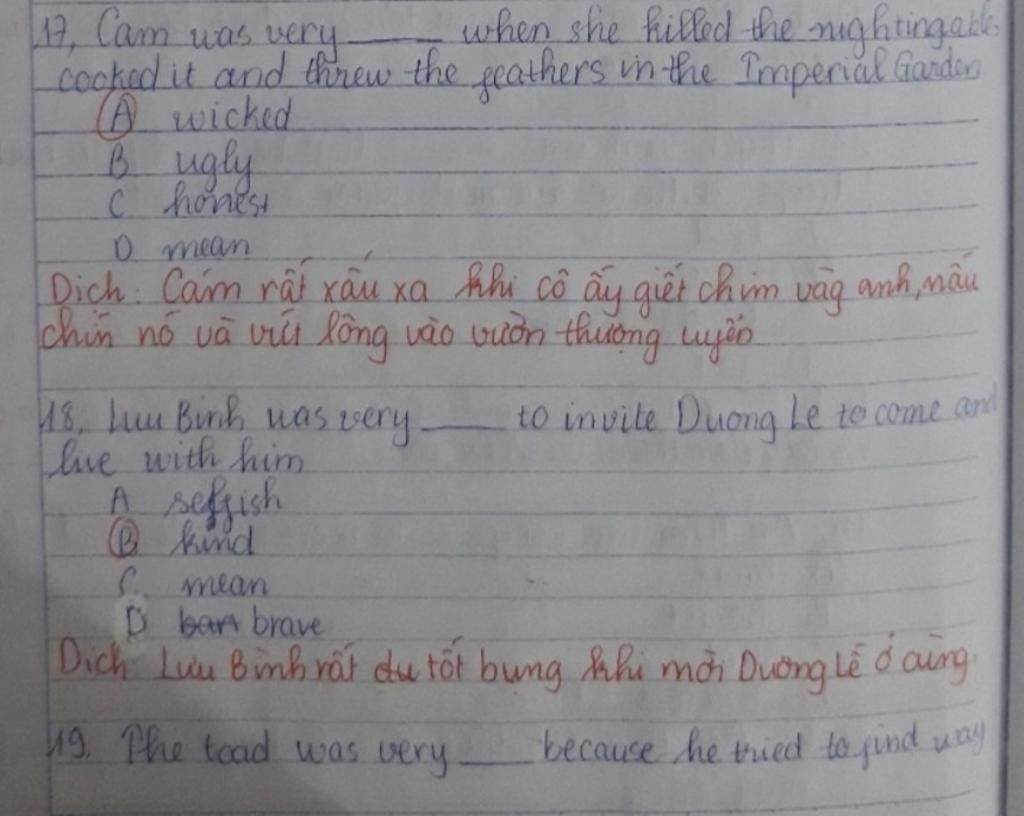 17, Cam was very ____ when she killed the nightingable,
cooked it and threw the feathers in the Imperial Garden
A wicked
B ugly
C honest
D mean
Dịch: Cám rất xấu xa khi cô ấy giết chim vàg anh, nấu
chín nó và vứt lông vào vườn thượng uyển
18, Luu Binh was very ____ to invite Duong Le to come and
live with him
A selfish
B kind
C mean
D brave
Dịch: Lưu Bình rất tốt bụng khi mời Dương Lễ ở cùng.
19. The toad was very ____ because he tried to find way